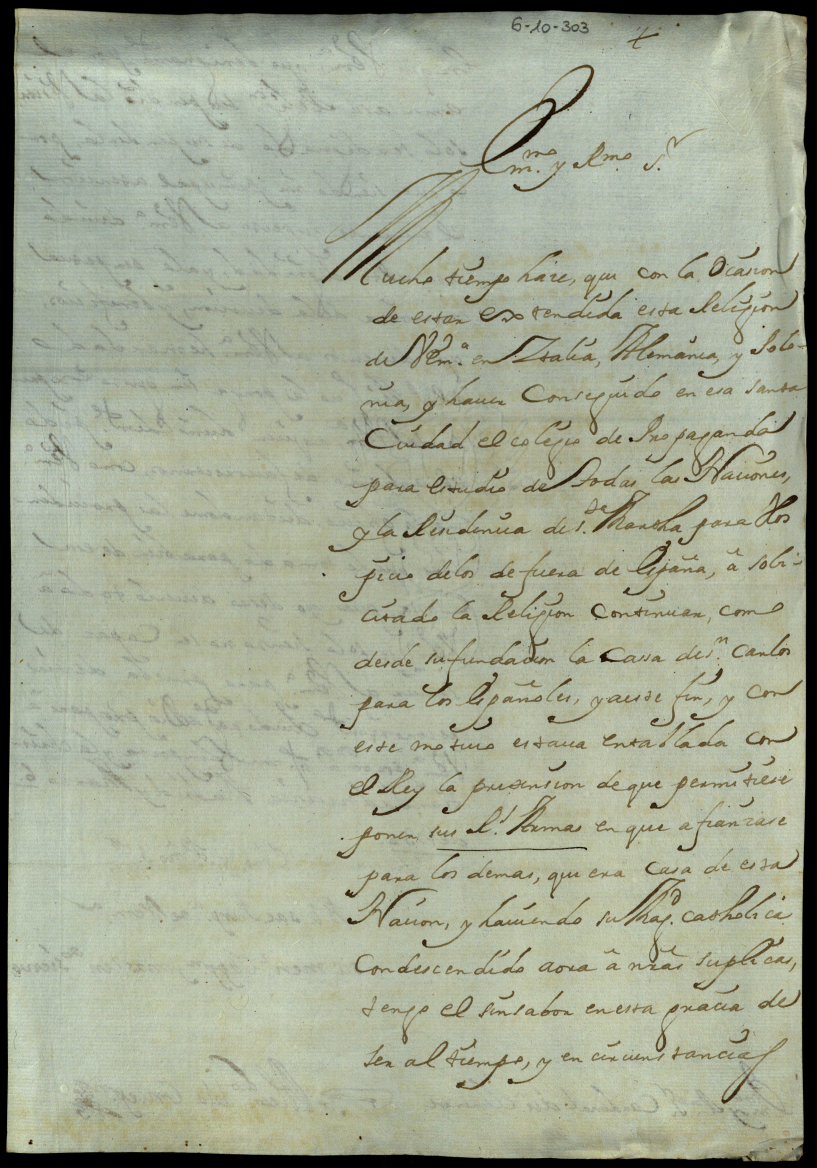 6-10-303
Em.mo y R.mo S.r
Mucho tiempo hace, que con la Ocasion
de estar extendida esta Religion
de V.Em.a en Italia, Alemania, y Polo-
nia, y haver Conseguido en esa santa
Ciudad el colegio de Propaganda
para estudio de todas las Naciones,
y la Residencia de S.ta Martha para Hos
picio delos de fuera de España, â soli-
citado la Religion Continuar, como
desde su fundacion la Cassa de S.n Carlos
para los Españoles, y a este fin, y con
este motivo estava entablada con
el Rey la pretension de que permitiese
poner sus R.s Armas en que afianzase
para los demas, que era Casa de esta
Nacion, y haviendo su Mag.d catholica
Condescendido aora â nrâs suplicas,
tengo el sinsabor en esta gracia de
ser al tiempo, y en circunstancias